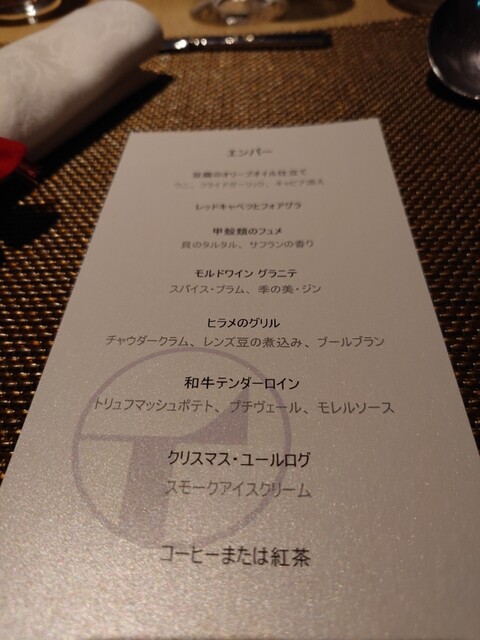 エンバー
豆腐のオリーブオイル仕立て
ウニ、フライドガーリック、キャビア添え
レッドキャベツとフォアグラ
甲殻類のフュメ
貝のタルタル、サフランの香り
モルドワイン グラニテ
スパイス・プラム、季の美・ジン
ヒラメのグリル
チャウダークラム、レンズ豆の煮込み、ブールブラン
和牛テンダーロイン
トリュフマッシュポテト、プチヴェール、モレルソース
クリスマス・ユールログ
スモークアイスクリーム
コーヒーまたは紅茶